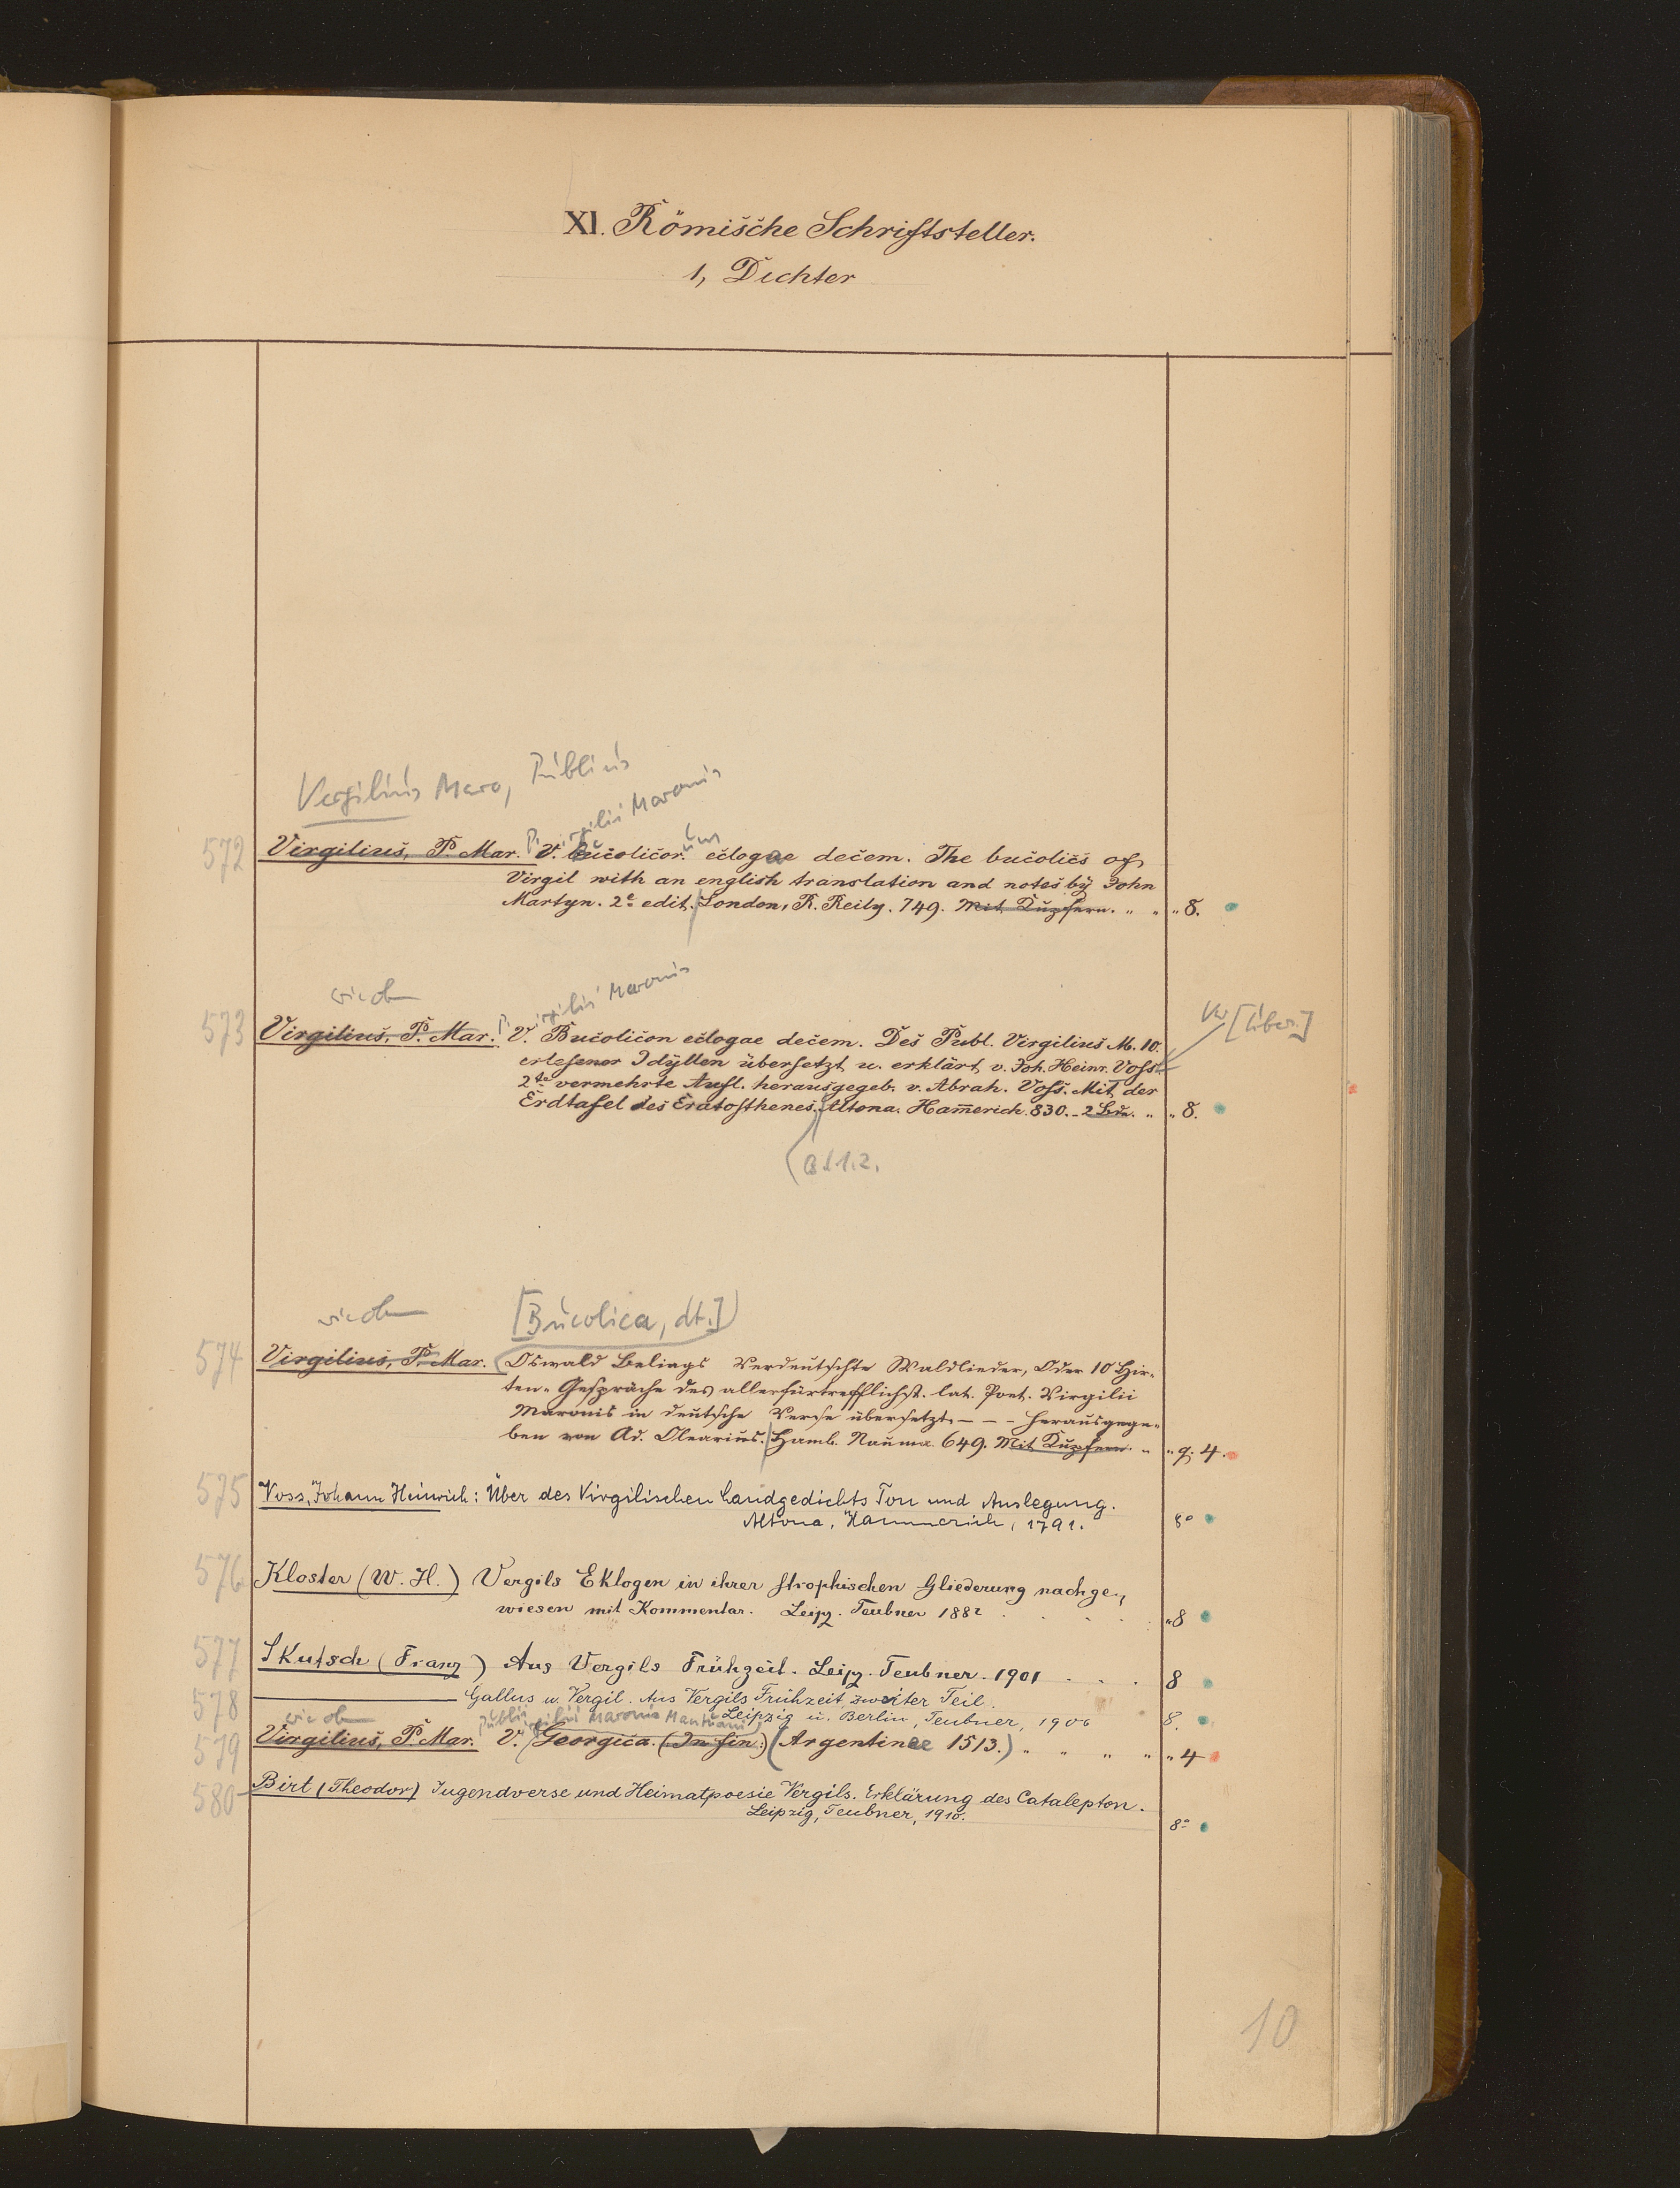 XI. Römische Schriftsteller.
1, Dichter
Vergilius Maro, Publius
P. Virgilii Maronis
572 Virgilius, P. Mar. V. Bucolicor. um eclogae decem. The bucolics of
Virgil with an english translation and notes by John
Martyn. 2e edit. London, R. Reily. 749. Mit Kupfern. " " " 8.
wie oben P. Virgilii Maronis
573 Virgilius, P. Mar. V. Bucolicon eclogae decem. Des Publ. Virgilius M. 10.
erlesener Idyllen übersetzt u. erklärt v. Joh. Heinr. Voss.
[Über.]
2te vermehrte Aufl. herausgegeb. v. Abrah. Voss. Mit der
Erdtafel des Eratosthenes. Altona. Ham̅erich. 830. - 2 Bde. " " 8.
Bd 1.2.
wie oben [Bucolica, dt.]
574 Virgilius, P. Mar. Oswald Beliags Verdeutschte Waldlieder, Oder 10 Hir-
ten-Gespräche des allerfürtrefflichst. lat. Poet. Virgilii
Maronis in deutsche Verse übersetzt - - - herausgege-
ben von Ad. Olearius. Hamb. Nauma. 649. Mit Kupfern. " " q. 4.
575 Voss, Johann Heinrich: Über des Virgilischen Landgedichts Ton und Auslegung.
Altona, Hammerich, 1791. 8°
576 Kloster (W. H.) Vergils Eklogen in ihrer strophischen Gliederung nachge-
wiesen mit Kommentar. Leipz. Teubner 1882 . . . . "8
577 Skutsch (Franz) Aus Vergils Frühzeit. Leipz. Teubner. 1901 . . . 8
578 ——— Gallus u. Vergil. Aus Vergils Frühzeit zweiter Teil.
Leipzig u. Berlin, Teubner, 1906 8.
wie oben Publii Virgilii Maronis Mantuani
579 Virgilius, P. Mar. V. Georgica. (In fin:) (Argentinae 1513.) " " " " " 4
580 Birt (Theodor) Jugendverse und Heimatpoesie Vergils. Erklärung des Catalepton.
Leipzig, Teubner, 1910. 8°
10